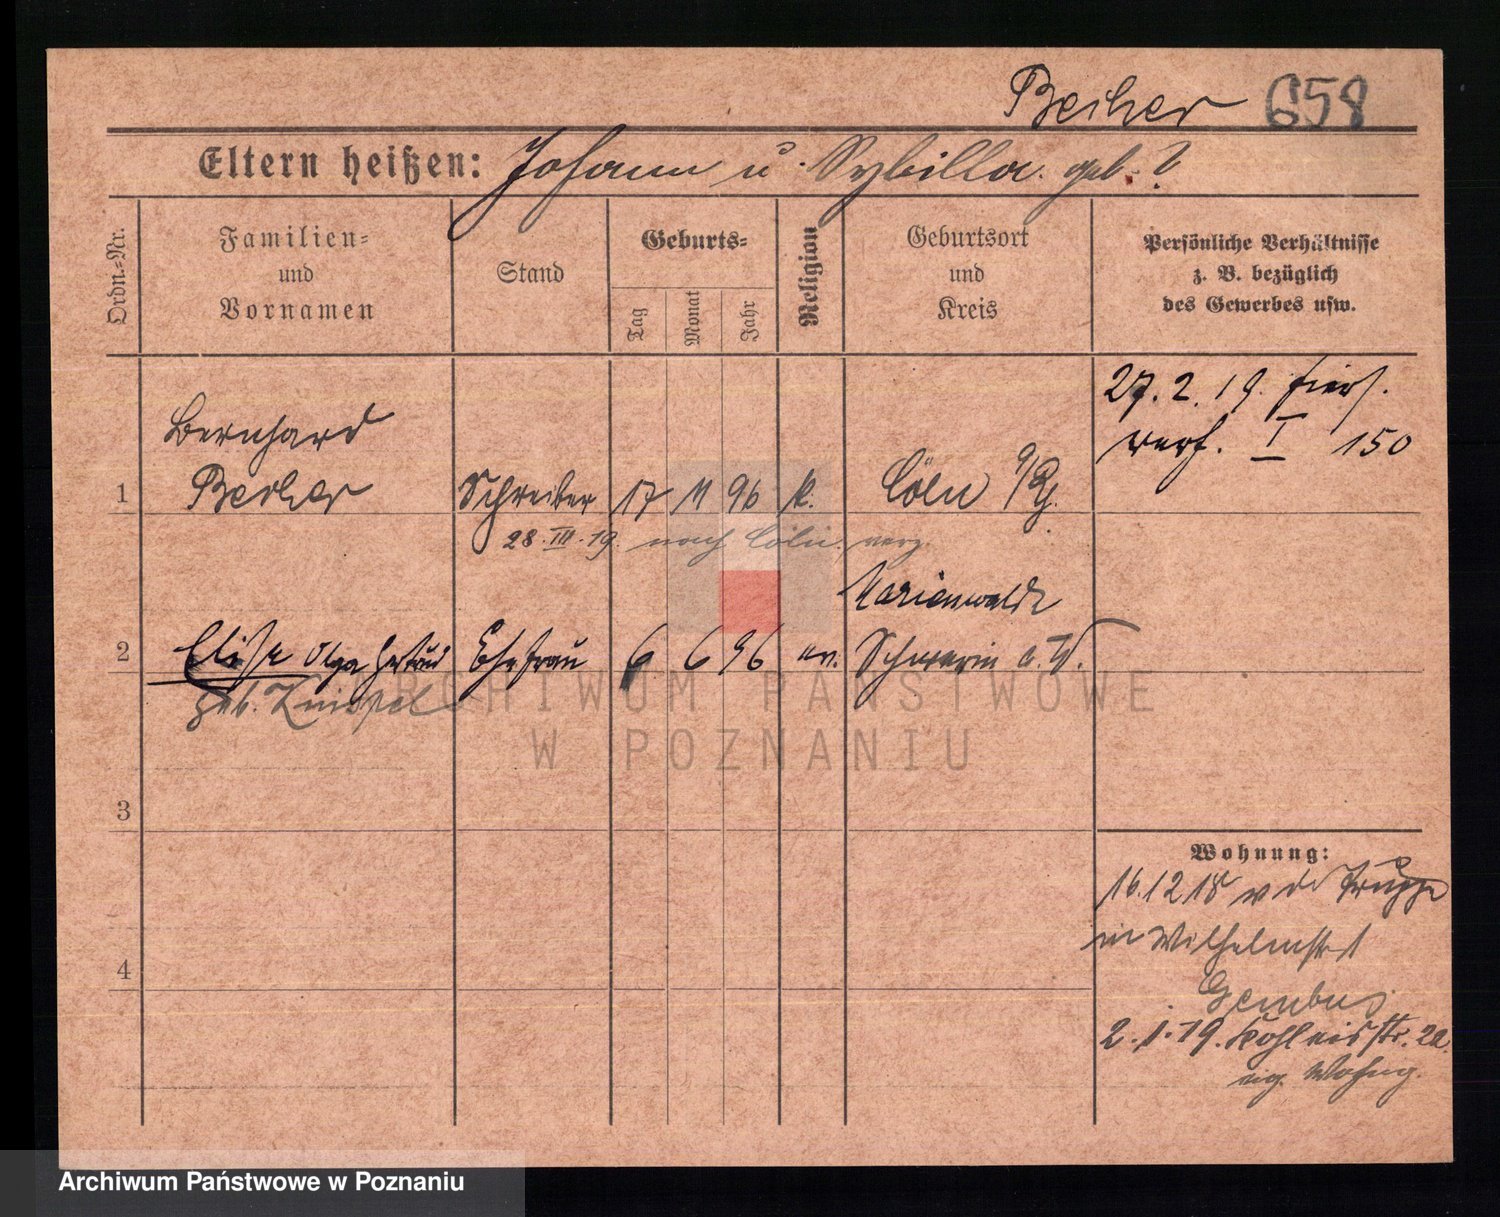 Becher 658
Eltern heißen: Johann u. Sybilla geb. ?
Ordn.-Nr.
Familien-
und
Vornamen
Stand
Geburts-
Tag
Monat
Jahr
Religion
Geburtsort
und
Kreis
Persönliche Verhältnisse
z. B. bezüglich
des Gewerbes usw.
27. 2. 19.
I 150
Bernhard
1 Becher Schreiber 17 11 96 k. Cöln a/Rh.
28. III. 19. nach Cöln verz.
Marienwalde
2 Elise Olga Gertrud Ehefrau 6 6 96 ev. Schwerin a. W.
geb.
3
4
Wohnung:
16.12 18 v der Truppe
in Wilhelmstr 1
2. 1. 19.
eig. Wohng.
ARCHIWUM PAŃSTWOWE
W POZNANIU
Archiwum Państwowe w Poznaniu